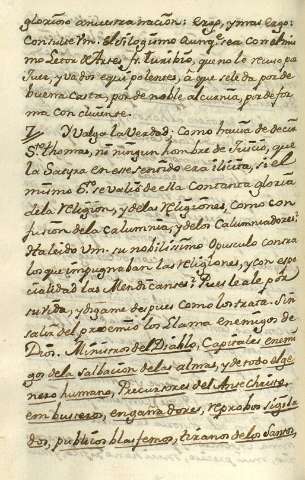 glorioso a nuestra nacion: ergo, y mas ergo:
Consulte Vm. el Silogismo aunq.e sea con el mis
mo Letor d'Artes fr. Turibio, que no le recuso por
Juez, y va dos equipolentes, à que sele da por de
buena Casta, por de noble alcurnia, por de for
ma con cluiense.
7/ Y valga la Verdad; Como havia de decir
S.to Thomas, ni ningun hombre de Juicio, que
la Satyra en ese sentido era ilicita, si el
mismo S.to se valiò de ella Con tanta gloria
dela Religion, y delas Religiones, Como con
fusion dela Calumnia, y delos Calumniadores?
Ha leido Vm. su nobilissimo Opusculo contra
los que impugnaban las Religiones, y con espe
cialidad las Mendicantes? Pues leale por
su vida, y digame despues como los trata. Sin
salir del proemio los llama enemigos de
Dios, Ministros del Diablo, Capitales enemi
gos dela Salbacion delas almas, y de todo el ge
nero humano, Precursores del Ante Christo,
embusteros, engañadores, reprobos sigila
dos, publicos blasfemos, tiranos delos Santos,